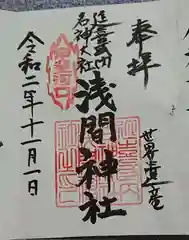 奉拝
世界遺産
延喜式内
名神大社
浅間神社
令和二年十一月一日